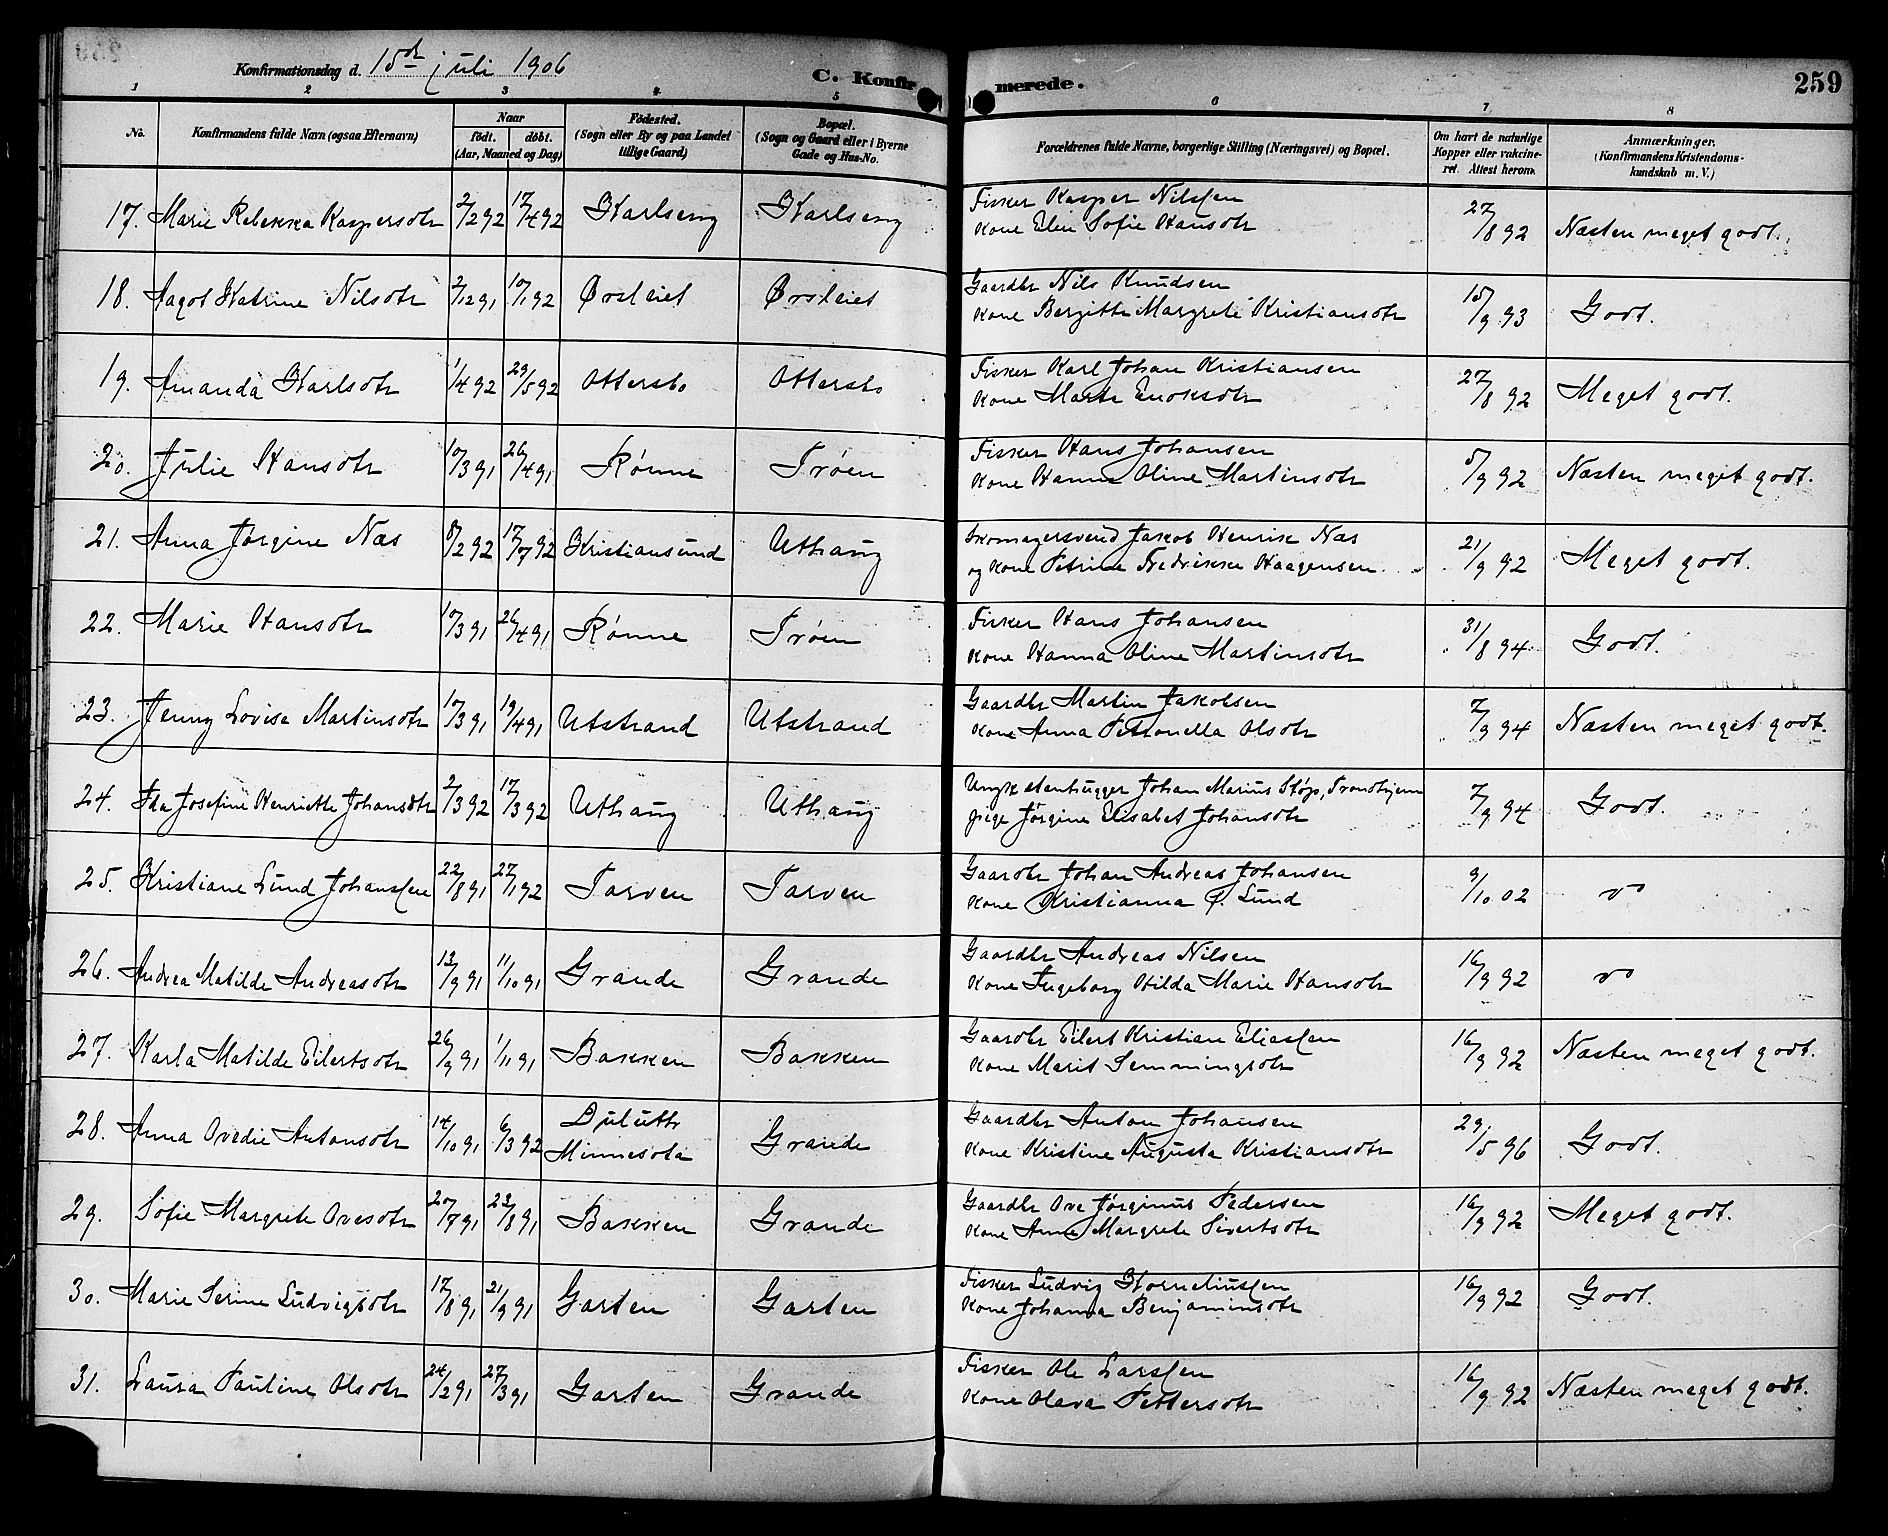 Konfirmationsdag d. 15de juli 1906
C. Konfirmerede.
259
1 2 3 4 5 6 7 8
No.
Konfirmandens fulde Navn (ogsaa Efternavn)
Naar
födt. döbt.
(Aar, Maaned og Dag)
Födested.
(Sogn eller By og paa Landet
tillige Gaard)
Bopæl.
(Sogn og Gaard eller i Byerne
Gade og Hus-No.
Forældrenes fulde Navne, borgerlige Stilling (Næringsvei) og Bopæl.
Om havt de naturlige
Kopper eller vakcine-
ret. Attest herom.
Anmærkninger.
(Konfirmandens Kristendoms-
kundskab m. V.)
17. Marie Rebekka Kaspersdtr 2/2 92 17/4 92 Karlseng Karlseng Fisker Kasper Nilssen 27/8 92 Næsten meget godt.
Kone Elen Sofie Hansdtr
18. Aagot Katrine Nilsdtr 2/12 91 10/1 92 Ørsleiet Ørsleiet Gaardbr Nils Knudsen 15/9 93 Godt.
Kone Bergitte Margrete Kristiansdtr
19. Amanda Karlsdtr 1/4 92 29/5 92 Ottersbo Ottersbo Fisker Karl Johan Kristiansen 27/8 92 Meget godt.
Kone Marta Enoksdtr
20. Julie Hansdtr 10/3 91 26/4 91 Rønne Trøen Fisker Hans Johansen 5/9 92 Næsten meget godt.
Kone Hanna Oline Martinsdtr
21. Anna Jørgine Næs 8/2 92 17/7 92 Kristiansund Uthaug Skomagersvend Jakob Henrik Næs 21/9 92 Meget godt.
og Kone Petrine Fredrikke Haagensen
22. Marie Hansdtr 10/3 91 26/4 91 Rønne Trøen Fisker Hans Johansen 31/8 94 Godt.
Kone Hanna Oline Martinsdtr
23. Jenny Lovise Martinsdtr 10/3 91 19/4 91 Utstrand Utstrand Gaardbr Martin Jakobsen 7/9 94 Næsten meget godt.
Kone Anna Petronella Olsdtr
24. Ida Josefine Henriette Johansdtr 2/3 92 17/3 92 Uthaug Uthaug Ungk stenhugger Johan Marius Støp, Trondhjem 7/9 94 Godt.
pige Jørgine Elisabet Johansdtr
25. Kristiane Lund Johanssen 22/8 91 27/1 92 Tarven Tarven Gaardbr Johan Andreas Johansen 9/10 02
Kone Kristianna Lund
26. Andrea Matilde Andreasdtr 13/9 91 11/10 91 Grande Grande Gaardbr Andreas Nilsen 16/9 92
Kone Ingeborg Hilda Marie Hansdtr
27. Karla Matilde Eilertsdtr 26/9 91 1/11 91 Bakken Bakken Gaardbr Eilert Kristian Eliassen 16/9 92 Næsten meget godt.
Kone Marit Semmingsdtr
28. Anna Ovedie Antonsdtr 14/10 91 6/3 92 Duluth Minnesota Grande Gaardbr Anton Johansen 29/5 96 Godt.
Kone Kristine Augusta Kristiansdtr
29. Sofie Margrete Ovesdtr 20/7 91 23/8 91 Bakken Grande Gaardbr Ove Jørginus Pedersen 16/9 92 Meget godt.
Kone Anne Margrete Sivertsdtr
30. Marie Serine Ludvigsdtr 17/8 91 21/9 91 Garten Garten Fisker Ludvig Korneliussen 16/9 92 Godt.
Kone Johanna Benjaminsdtr
31. Laura Pauline Olsdtr 24/2 91 27/3 91 Garten Grande Fisker Ole Larssen 16/9 92 Næsten meget godt.
Kone Olava Pettersdtr